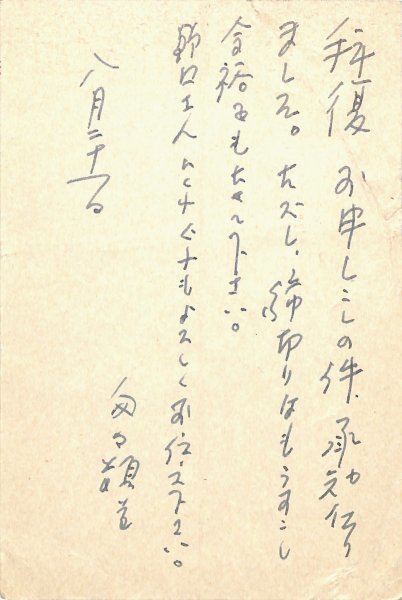 拝復 お申しこしの件、承知仕り
ました。ただし、締切りはもうすこし
余裕をもたせて下さい。
野口さんにもくれぐれもよろしくお伝え下さい。
八月二十一日